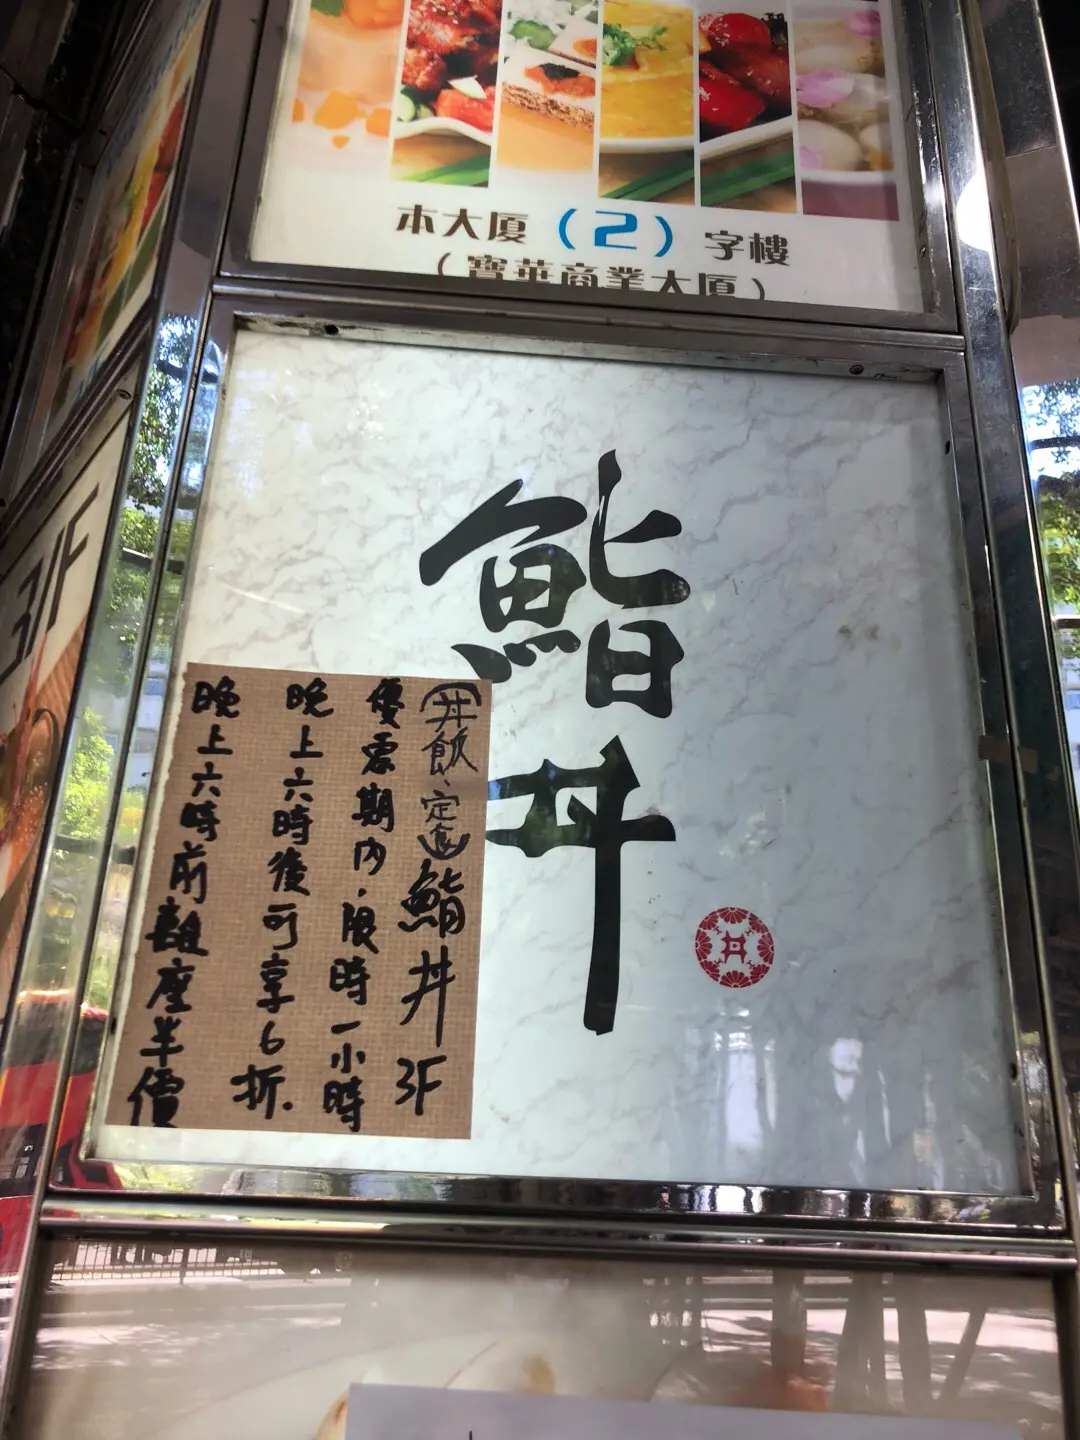 本大厦（2）字樓
（寶華商業大厦）
鮨丼
（丼飯、定食）鮨丼 3F
優惠期內．限時一小時
晚上六時後可享6折．
晚上六時前離座半價
3/F